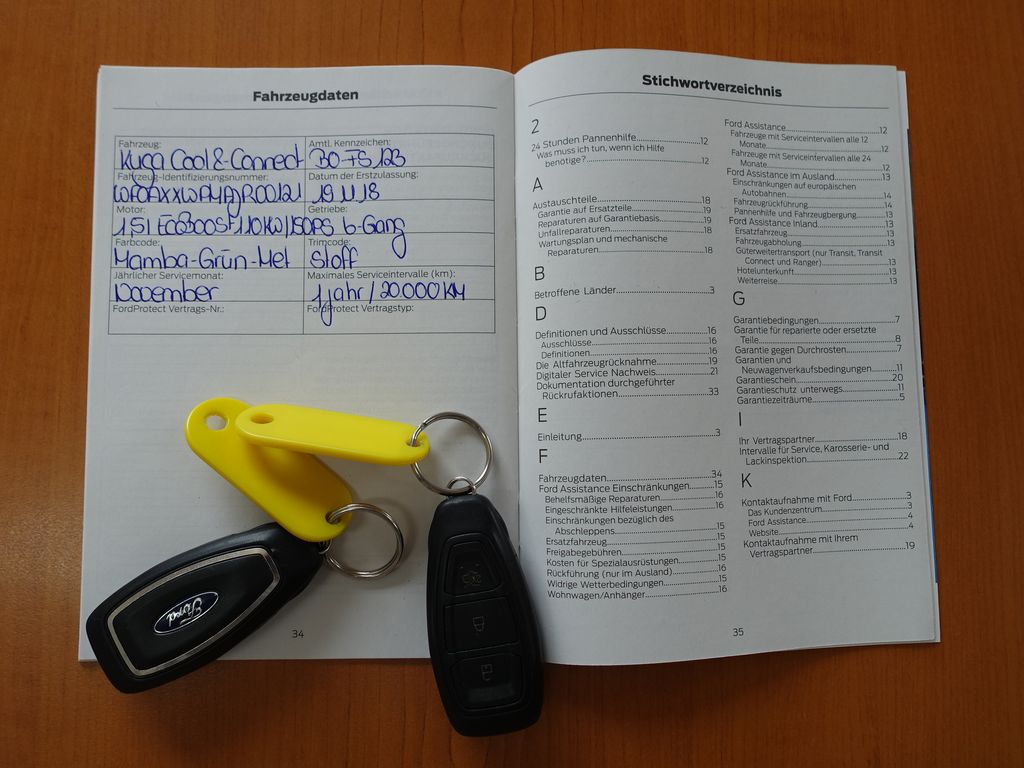 Fahrzeugdaten
Fahrzeug:
Kuga Cool & Connect
Amtl. Kennzeichen:
BO FS 123
Fahrzeug-Identifizierungsnummer:
Datum der Erstzulassung:
19.11.18
Motor:
1,5l EcoBoost 110KW/150PS
Getriebe:
6-Gang
Farbcode:
Mamba-Grün-Met
Trimcode:
Stoff
Jährlicher Servicemonat:
November
Maximales Serviceintervalle (km):
1 Jahr / 20000 KM
FordProtect Vertrags-Nr.:
FordProtect Vertragstyp:
34
Ford
Stichwortverzeichnis
2
24 Stunden Pannenhilfe 12
Was muss ich tun, wenn ich Hilfe
benötige? 12
A
Austauschteile 18
Garantie auf Ersatzteile 19
Reparaturen auf Garantiebasis 19
Unfallreparaturen 18
Wartungsplan und mechanische
Reparaturen 18
B
Betroffene Länder 3
D
Definitionen und Ausschlüsse 16
Ausschlüsse 16
Definitionen 16
Die Altfahrzeugrücknahme 19
Digitaler Service Nachweis 21
Dokumentation durchgeführter
Rückrufaktionen 33
E
Einleitung 3
F
Fahrzeugdaten 34
Ford Assistance Einschränkungen 15
Behelfsmäßige Reparaturen 16
Eingeschränkte Hilfeleistungen 16
Einschränkungen bezüglich des
Abschleppens 15
Ersatzfahrzeug 15
Freigabegebühren 15
Kosten für Spezialausrüstungen 15
Rückführung (nur im Ausland) 16
Widrige Wetterbedingungen 15
Wohnwagen/Anhänger 16
Ford Assistance 12
Fahrzeuge mit Serviceintervallen alle 12
Monate 12
Fahrzeuge mit Serviceintervallen alle 24
Monate 12
Ford Assistance im Ausland 13
Einschränkungen auf europäischen
Autobahnen 14
Fahrzeugrückführung 14
Pannenhilfe und Fahrzeugbergung 13
Ford Assistance Inland 13
Ersatzfahrzeug 13
Fahrzeugabholung 13
Güterweitertransport (nur Transit, Transit
Connect und Ranger) 13
Hotelunterkunft 13
Weiterreise 13
G
Garantiebedingungen 7
Garantie für reparierte oder ersetzte
Teile 8
Garantie gegen Durchrosten 7
Garantien und
Neuwagenverkaufsbedingungen 11
Garantieschein 20
Garantieschutz unterwegs 11
Garantiezeiträume 5
I
Ihr Vertragspartner 18
Intervalle für Service, Karosserie- und
Lackinspektion 22
K
Kontaktaufnahme mit Ford 3
Das Kundenzentrum 3
Ford Assistance 4
Website 4
Kontaktaufnahme mit Ihrem
Vertragspartner 19
35